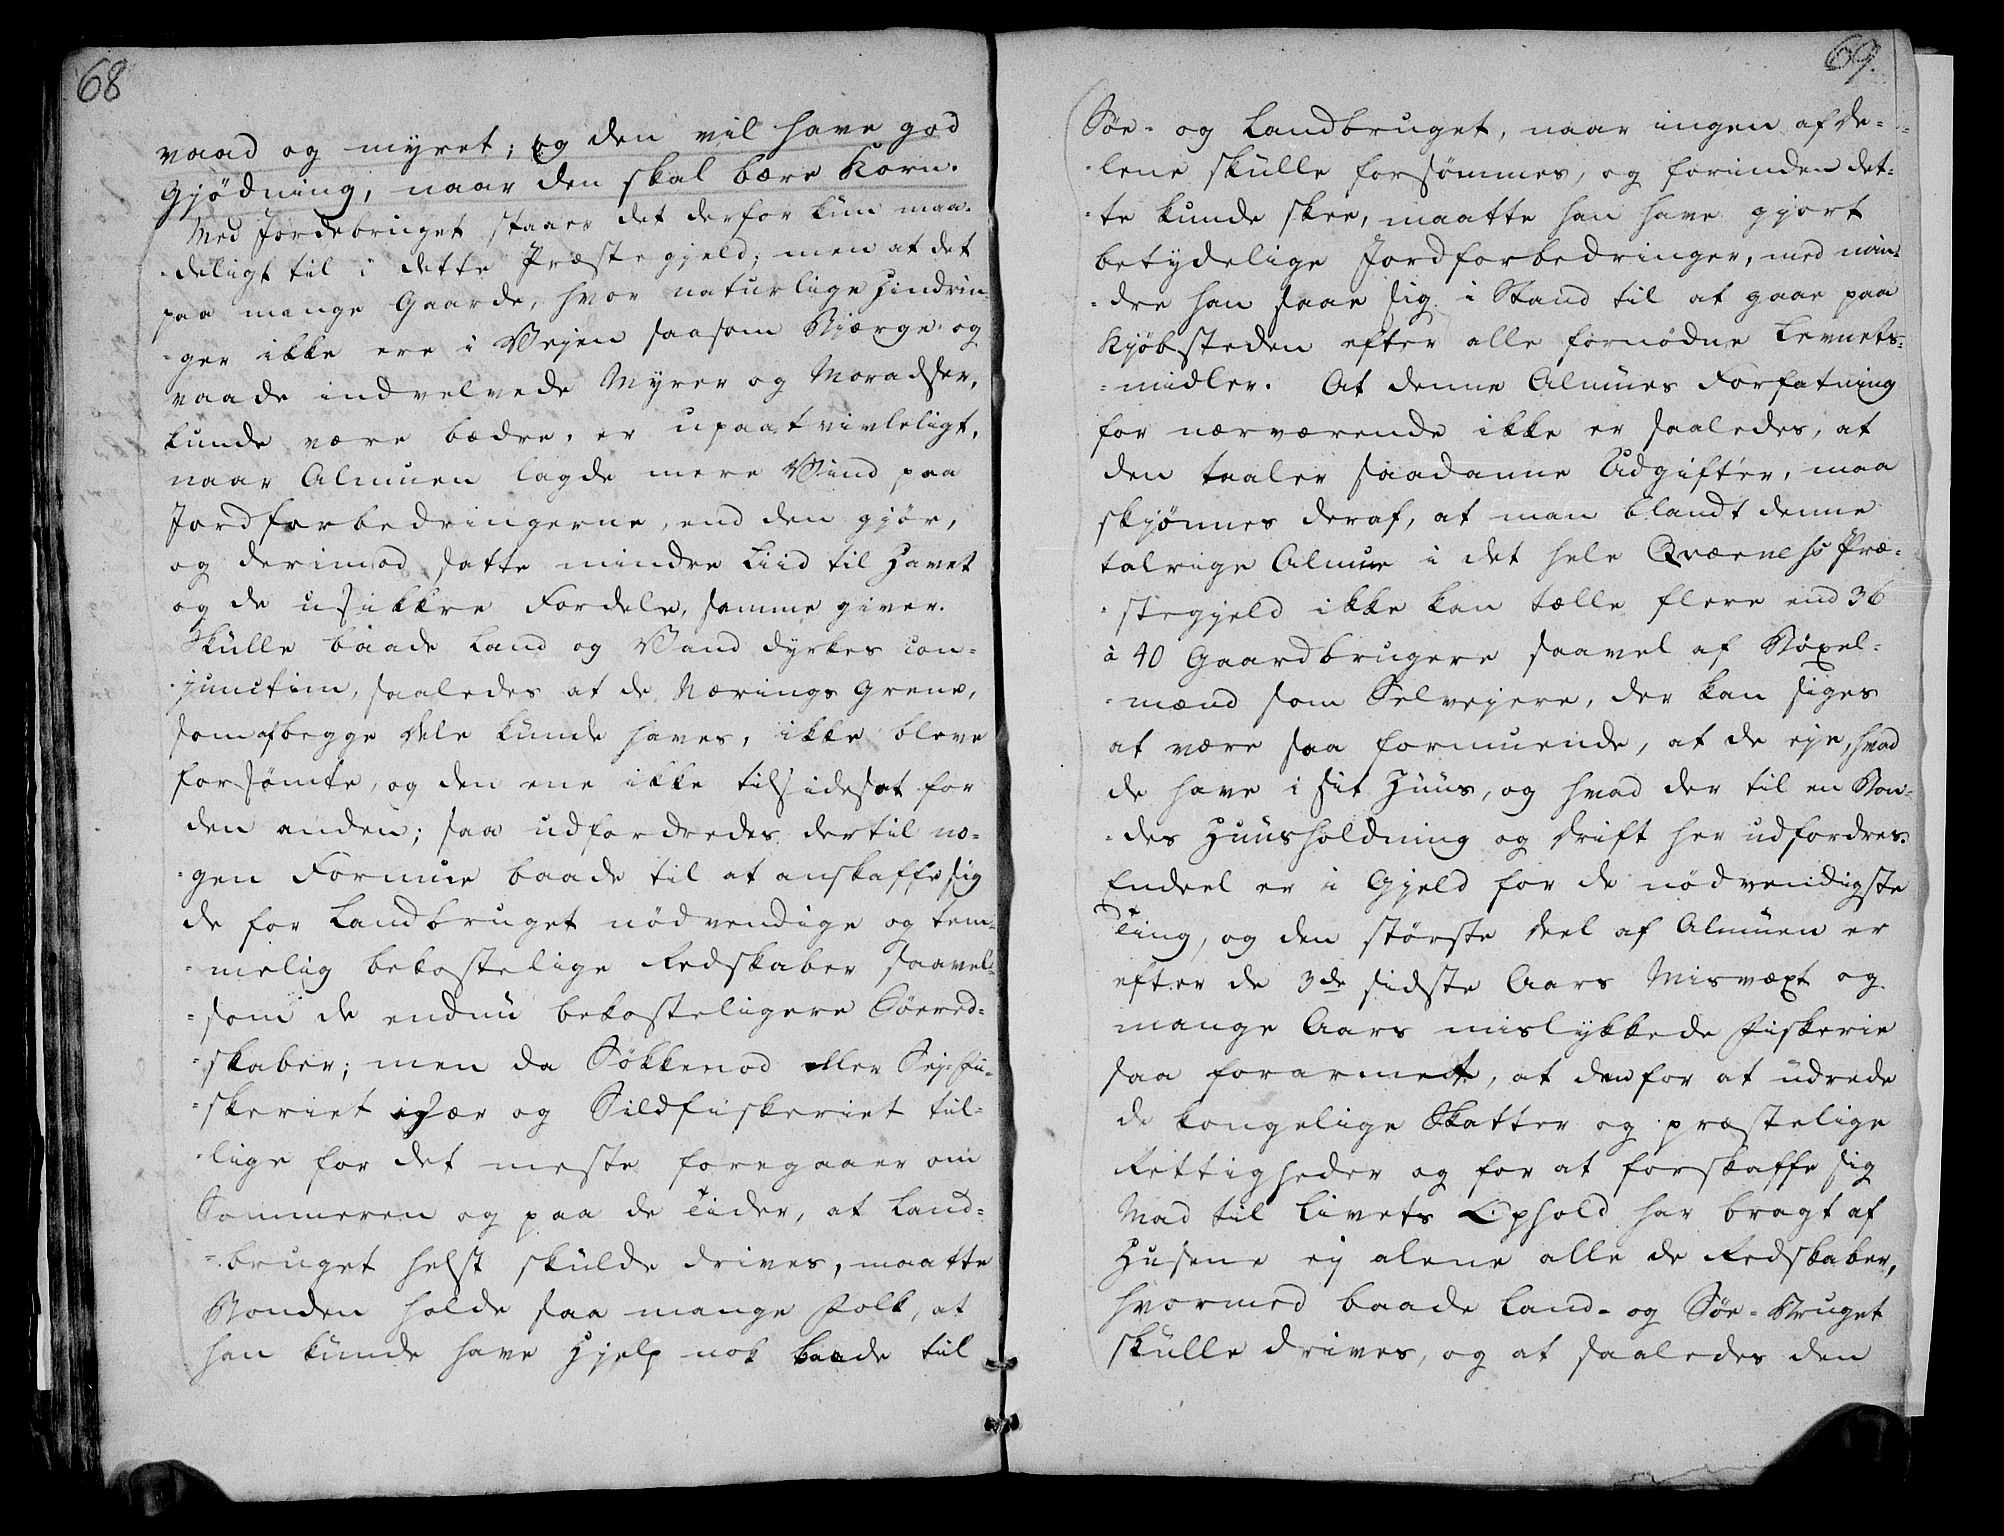 68
vaad og myret; og den vil have god
Gjödning, naar den skal bære Korn.
Med Jordebruget staaer det derfor kun maa-
deligt til i dette Præstegjeld; men at det
paa mange Gaarde, hvor naturlige Hindrin-
-ger ikke ere i Vejen saasom Bjærge og
vaade indvelvede Myrer og Moradser,
kunde være bædre, er upaatvivleligt,
naar Almuen lagde mere Vind paa
Jordforbedringerne, end den gjör,
og derimod satte mindre Liid til Havet
og de usikkre Fordele, samme giver.
Skulle baade Land og Vand dyrkes con-
junctim, saaledes at de Nærings Grene,
som af begge Dele kunde haves, ikke bleve
forsömte, og den ene ikke tilsidesat for
den anden; saa udfordredes dertil no-
-gen Formue baade til at anskaffe sig
de for Landbruget nödvendige og tem-
-melig bekostelige Redskaber saavel-
-som de endnu bekosteligere Söered-
-skaber; men da Sökkenod eller Sej-Fi-
-skeriet især og Sildfiskeriet til-
-lige for det meste foregaaer om
Sommeren og paa de Tider, at Land-
-bruget helst skulde drives, maatte
Bonden holde saa mange Folk, at
han kunde have Hjelp nok baade til
69.
Söe- og Landbruget, naar ingen af De-
-lene skulle forsömmes, og forinden det-
-te kunde skee, maatte han have gjort
betydelige Jordforbedringer, med min-
-dre han saae sig i Stand til at gaae paa
Kjöbsteden efter alle fornödne Levnets-
-midler. At denne Almues Forfatning
for nærværende ikke er saaledes, at
den taaler saadanne Udgifter, maa
skjönnes deraf, at man blandt denne
talrige Almue i det hele Qværnes Præ-
-stegjeld ikke kan tælle flere end 36
à 40 Gaardbrugere saavel af Böxel-
-mænd som Selvejere, der kan siges
at være saa formuende, at de eje, hvad
de have i sit Huus, og hvad der til en Bon-
-des Huusholdning og Drift her udfordres.
Endeel er i Gjeld for de nödvendigste
Ting, og den störste Deel af Almuen er
efter de 3de sidste Aars Misvæxt og
mange Aars mislykkede Fiskerie
saa forarmet, at den for at udrede
de kongelige Skatter og præstelige
Rettigheder og for at forskaffe sig
Mad til Livets Ophold har bragt af
Husene ej alene alle de Redskaber,
hvormed baade Land- og Söe-Bruget
skulle drives, og at saaledes den